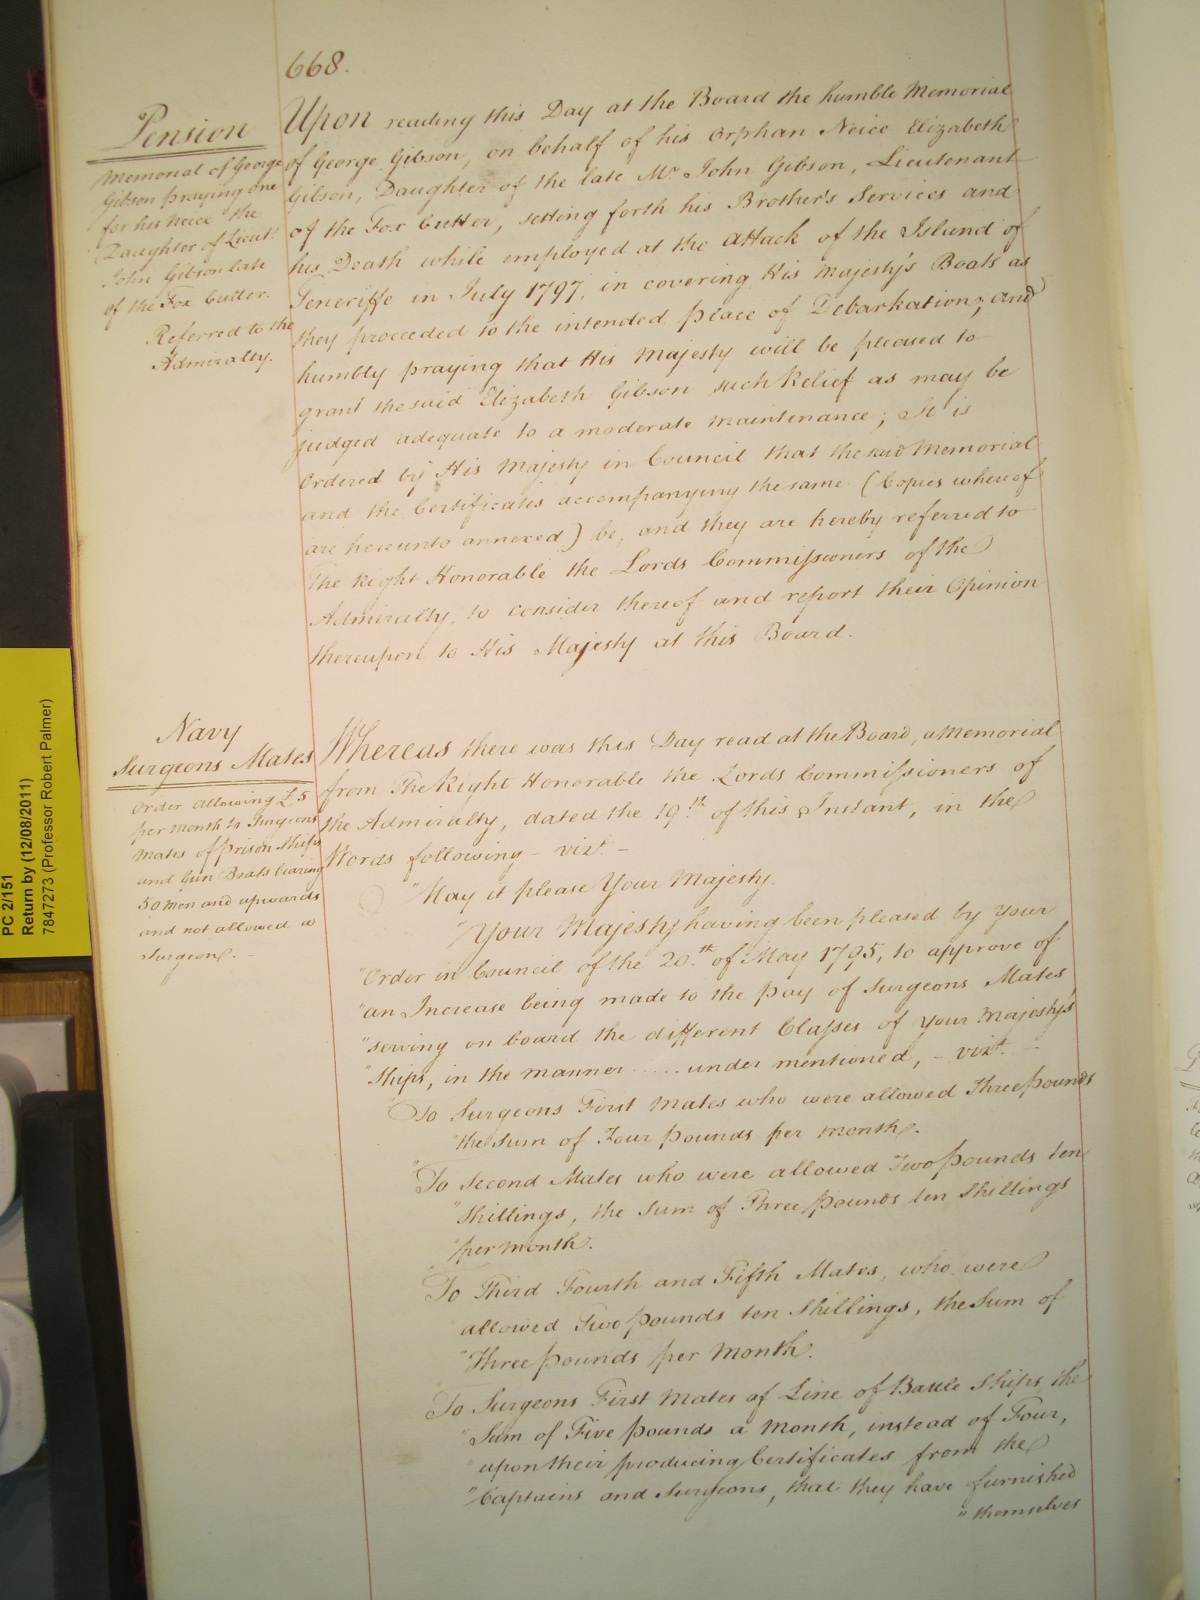 668.
Pension
Memorial of George
Gibson praying one
for his Neice the
Daughter of Lieut.
John Gibson late
of the Fox Cutter.
Referred to the
Admiralty.
Upon reading this Day at the Board the humble Memorial
of George Gibson, on behalf of his Orphan Neice Elizabeth
Gibson, Daughter of the late Mr. John Gibson, Lieutenant
of the Fox Cutter, setting forth his Brother's Services and
his Death while employed at the Attack of the Island of
Teneriffe in July 1797, in covering His Majesty's Boats as
they proceeded to the intended place of Debarkation; and
humbly praying that His Majesty will be pleased to
grant the said Elizabeth Gibson such Relief as may be
judged adequate to a moderate maintenance; It is
Ordered by His Majesty in Council that the said Memorial
and the Certificates accompanying the same (Copies whereof
are hereunto annexed) be, and they are hereby referred to
The Right Honorable the Lords Commissioners of the
Admiralty, to consider thereof and report their Opinion
thereupon to His Majesty at this Board.
Navy
Surgeons Mates
Order allowing £5
per Month to Surgeons
Mates of Prison Ships
and Gun Boats bearing
50 Men and upwards
and not allowed a
Surgeon. -
Whereas there was this Day read at the Board, a Memorial
from The Right Honorable the Lords Commissioners of
the Admiralty, dated the 19th of this Instant, in the
Words following - vizt. -
"May it please Your Majesty.
"Your Majesty having been pleased by Your
"Order in Council of the 20th of May 1795, to approve of
"an Increase being made to the pay of Surgeons Mates
"serving on board the different Classes of Your Majesty's
"Ships, in the manner ..... under mentioned, - vizt. -
To Surgeons First Mates who were allowed Three pounds
"the Sum of Four pounds per Month.
"To Second Mates who were allowed Two pounds ten
"Shillings, the Sum of Three pounds ten Shillings
"per Month.
"To Third Fourth and Fifth Mates, who were
allowed Two pounds ten Shillings, the Sum of
"Three pounds per Month.
To Surgeons First Mates of Line of Battle Ships, the
"Sum of Five pounds a Month, instead of Four,
upon their producing Certificates from the
"Captains and Surgeons, that they have furnished
"themselves
PC 2/151
Return by (12/08/2011)
7847273 (Professor Robert Palmer)